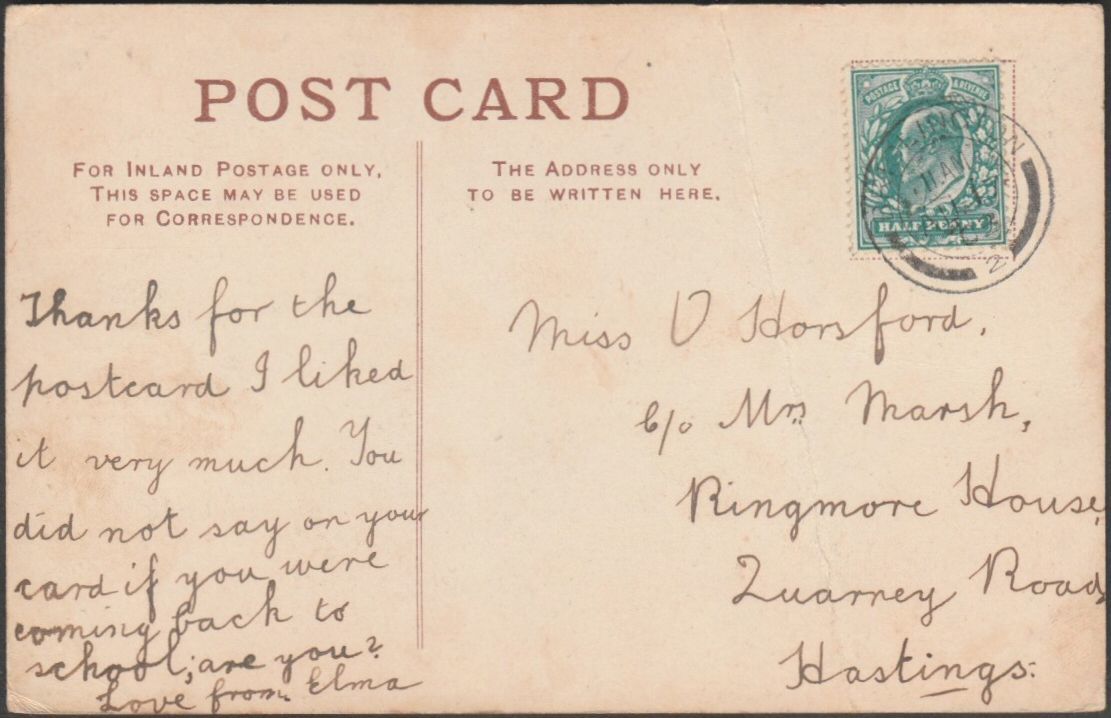 POST CARD
FOR INLAND POSTAGE ONLY,
THIS SPACE MAY BE USED
FOR CORRESPONDENCE.
THE ADDRESS ONLY
TO BE WRITTEN HERE.
POSTAGE & REVENUE
HALF PENNY
2
Thanks for the
postcard I liked
it very much. You
did not say on your
card if you were
coming back to
school; are you?
Love from Elma
Miss V Horsford,
c/o Mrs Marsh,
Ringmore House,
Quarrey Road,
Hastings.